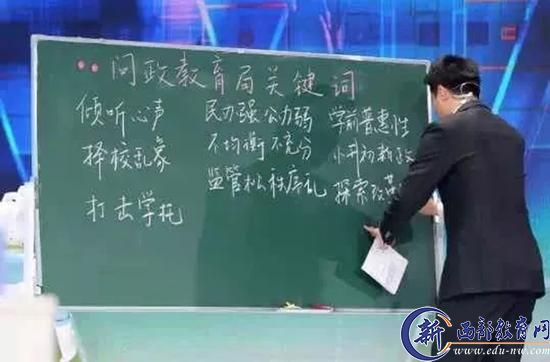 问政教育局关键词
倾听心声
择校乱象
打击学托
民办强公办弱
不均衡不充分
监管松秩序乱
学前普惠性
小升初新政
探索改革
新
西部教育网
www.edu-nw.com